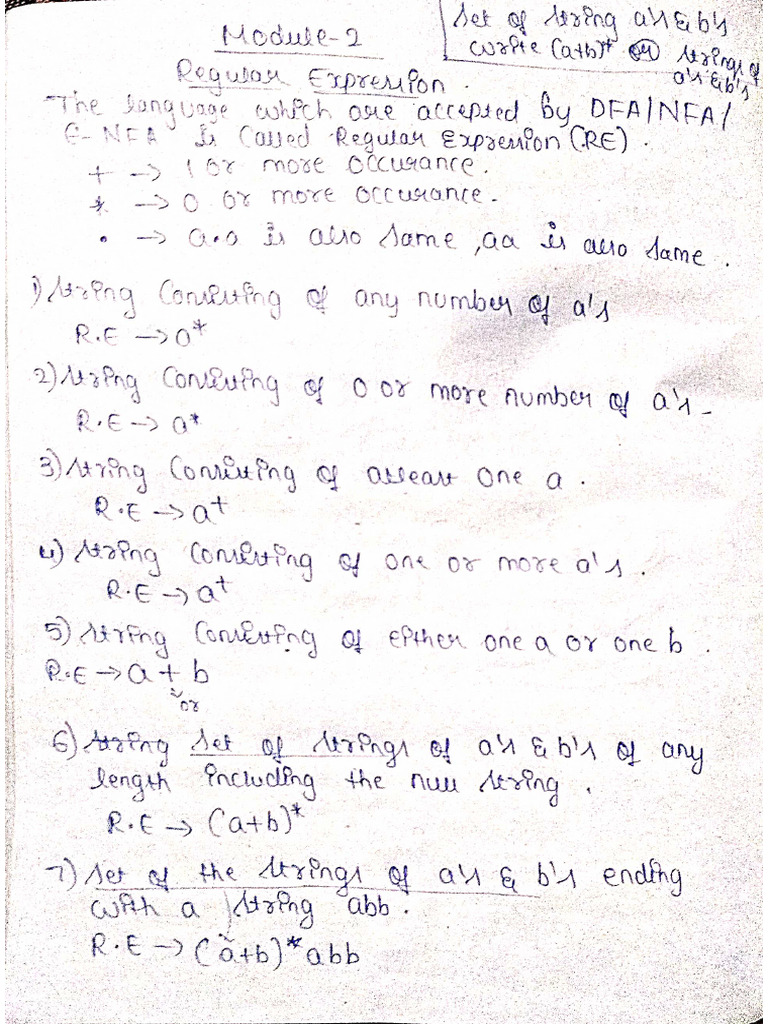 Module-2
Set of string a's & b's
write (a+b)* or strings of
a's & b's
Regular Expression.
-The language which are accepted by DFA/NFA/
ε-NFA is called Regular Expression (RE).
+ → 1 or more occurance.
* → 0 or more occurance.
. → a.a is also same, aa is also same.
1) String Consisting of any number of a's
R.E → a*
2) String Consisting of 0 or more number of a's-
R.E → a*
3) String Consisting of atleast one a.
R.E → a+
4) String Consisting of one or more a's.
R.E → a+
5) String Consisting of either one a or one b.
R.E → a + b
or
6) String Set of strings of a's & b's of any
length including the null string.
R.E → (a+b)*
7) Set of the strings of a's & b's ending
with a string abb.
R.E → (a+b)*abb